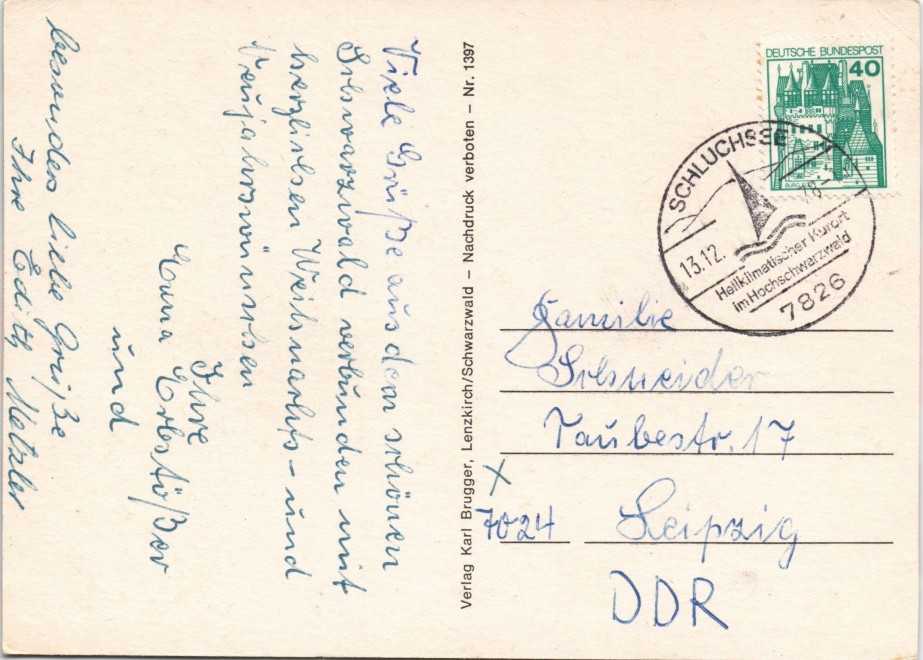 Viele Grüße aus dem schönen
Schwarzwald verbunden mit
herzlichen Weihnachts- und
Neujahrswünschen
Ihre
Erna Erbstößer
und
besonders liebe Grüße
Ihre Edith Metzler
Verlag Karl Brugger, Lenzkirch/Schwarzwald – Nachdruck verboten – Nr. 1397
DEUTSCHE BUNDESPOST
40
BURG
SCHLUCHSEE
13.12. 18
Heilklimatischer Kurort
im Hochschwarzwald
7826
Familie
Schneider
Taubestr. 17
7024 Leipzig
DDR